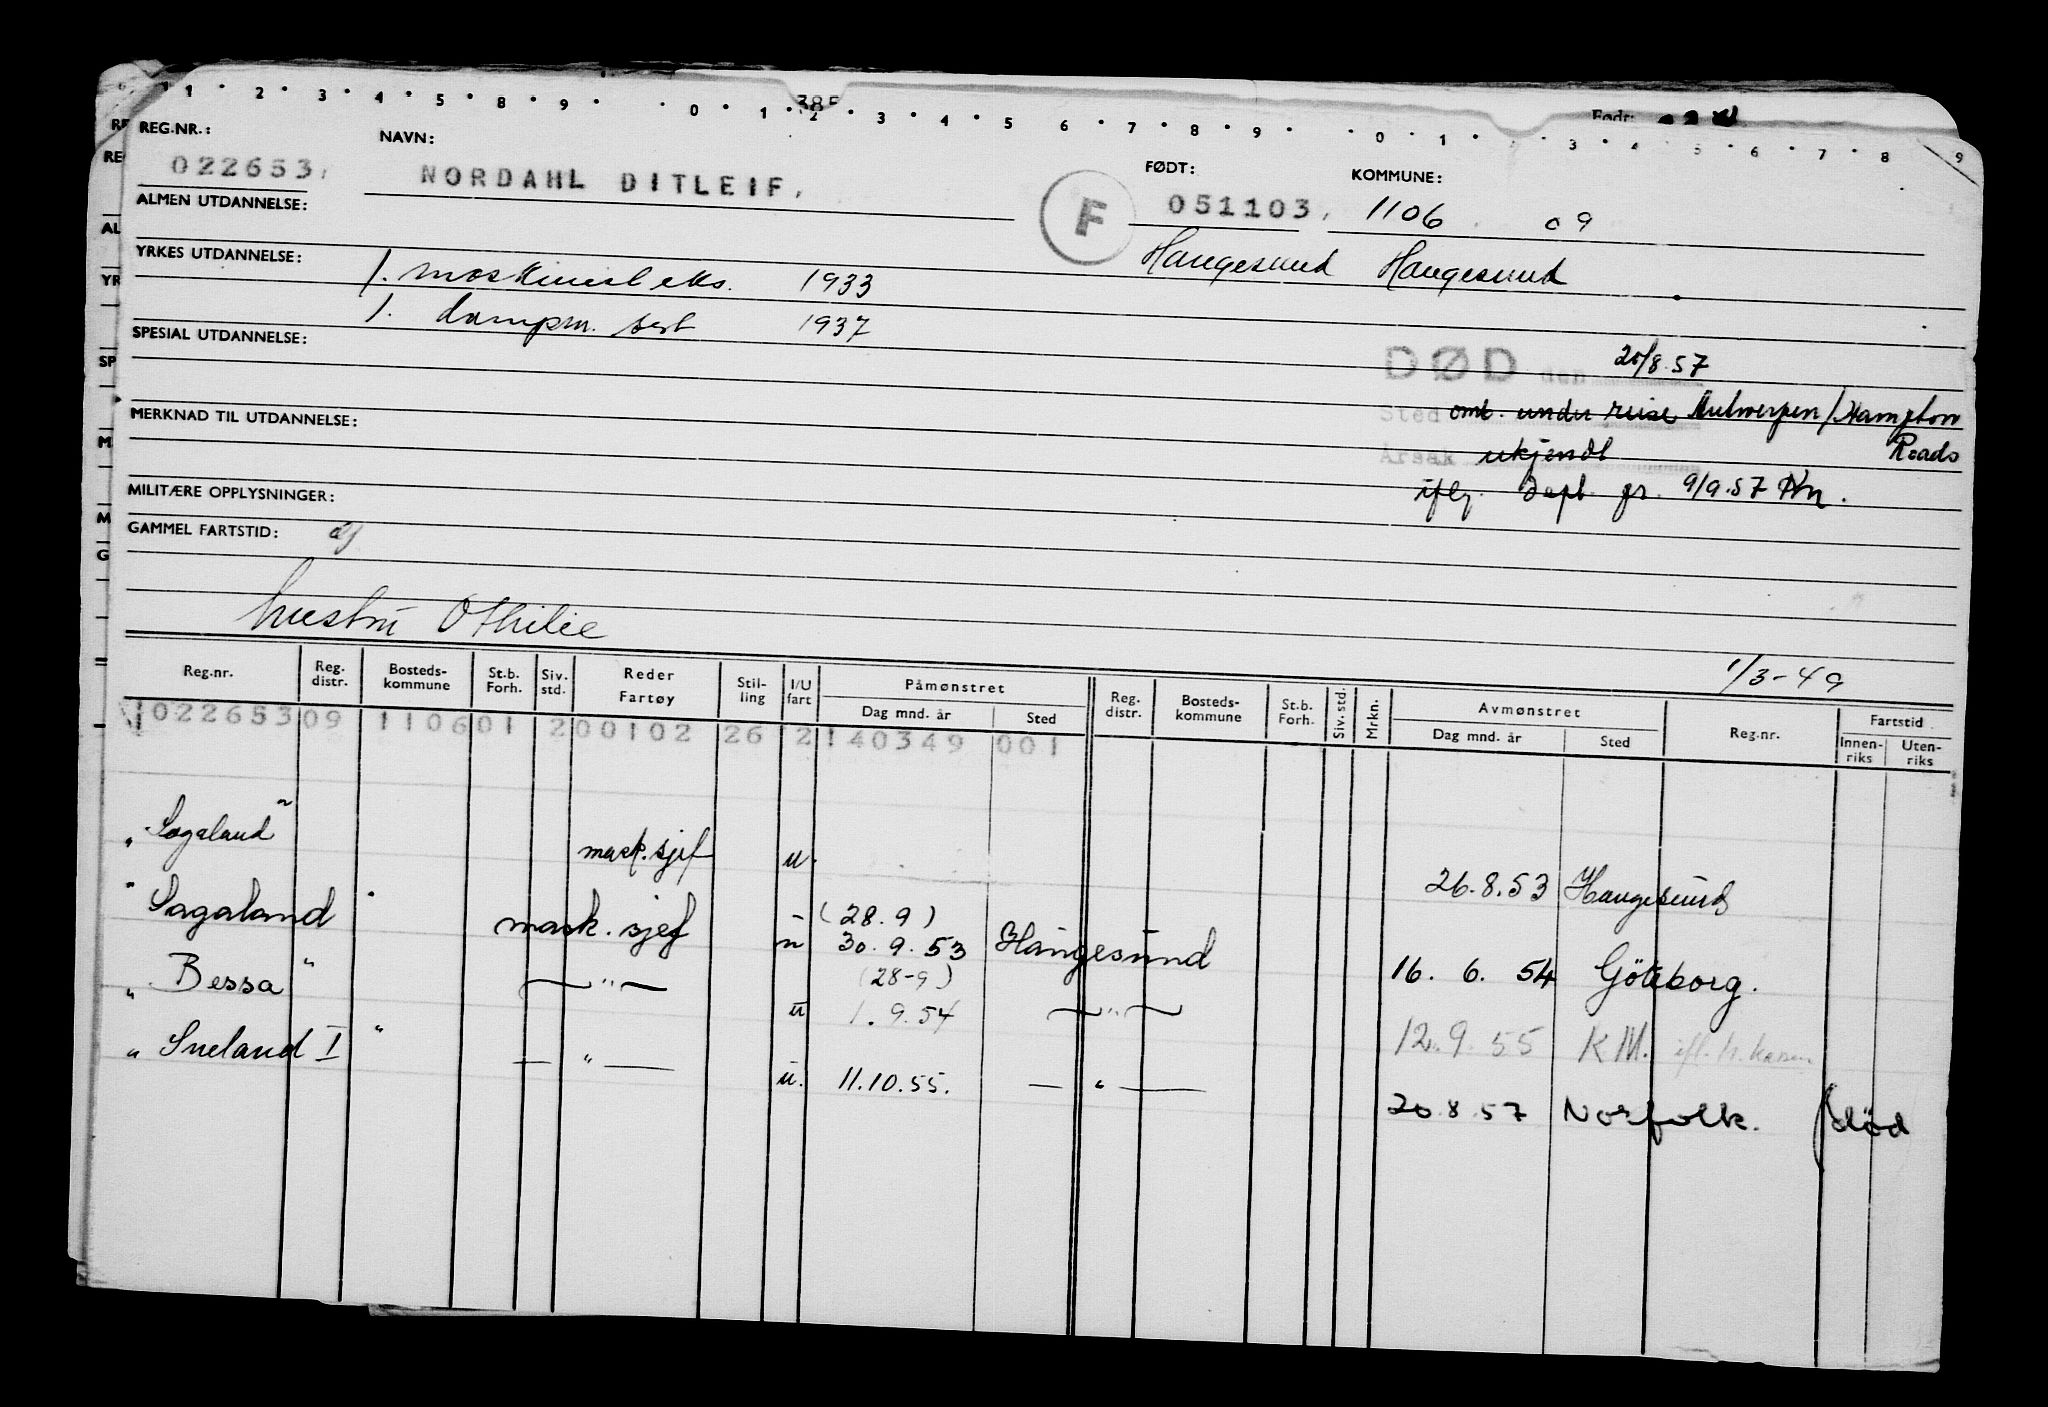 1 2 3 4 5 8 9 0 1 2 3 4 5 6 7 8 9 0 1 3 4 5 6 7 8 9
385
Født:
REG.NR.: NAVN: FØDT: KOMMUNE:
022653, NORDAHL DITLEIF, F 051103, 1106 09
ALMEN UTDANNELSE:
Haugesund Haugesund
YRKES UTDANNELSE: 1. maskinist eks. 1933
1. dampm. sert 1937
SPESIAL UTDANNELSE:
DØD den 20/8.57
Sted omb. under reise Antwerpen/Hampton
Roads
MERKNAD TIL UTDANNELSE:
Årsak ukjendt
MILITÆRE OPPLYSNINGER:
iflg. Dept. gr. 9/9.57
GAMMEL FARTSTID:
hustru Othilie
1/3-49
Reg.nr. Reg. distr. Bosteds-kommune St.b. Forh. Siv. std. Reder Fartøy Stil-ling I/U fart Påmønstret Dag mnd. år Sted Reg. distr. Bosteds-kommune St.b. Forh. Siv. std. Mrkn. Avmønstret Dag mnd. år Sted Reg.nr. Fartstid Innen-riks Uten-riks
022653 09 1106 01 2 00102 26 2 140349 001
"Sagaland" mask. sjef u. 26.8.53 Haugesund
"Sagaland" mask. sjef u (28.9) 30.9.53 Haugesund 16. 6. 54 Göteborg.
"Bessa" — " — u (28-9) 1.9.54 — " — 12.9.55 KM. ifl. h. kasse
"Sneland I" — " — u. 11.10.55. — " — 20.8.57 Norfolk. (död